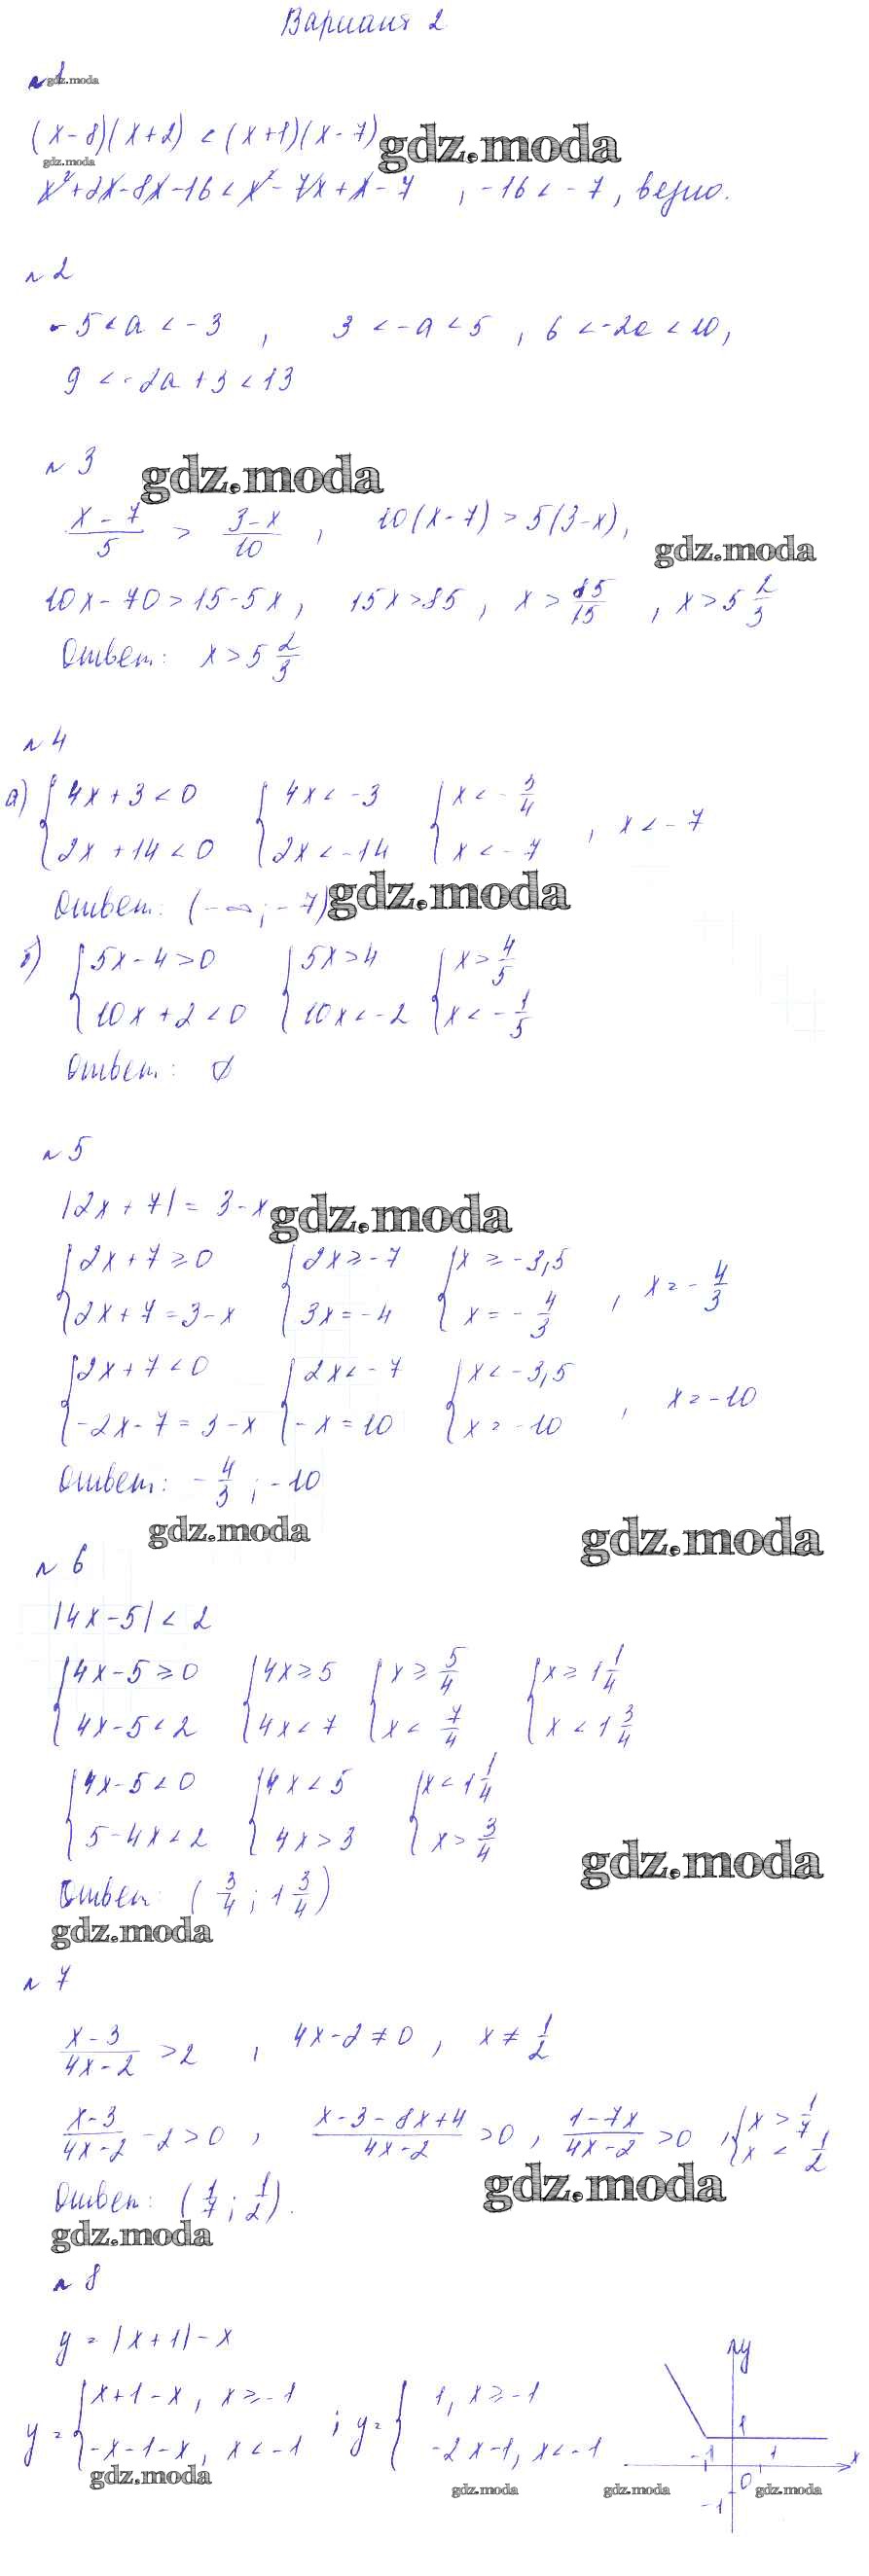 Вариант 2
№1
gdz.moda
(x-8)(x+2) < (x+1)(x-7)
gdz.moda
gdz.moda
x²+2x-8x-16 < x²-7x+x-7 , -16 < -7, верно.
№2
-5 < a < -3 , 3 < -a < 5 , 6 < -2a < 10,
9 < -2a + 3 < 13
№3
gdz.moda
(x-7)/5 > (3-x)/10 , 10(x-7) > 5(3-x),
gdz.moda
10x-70 > 15-5x, 15x > 85 , x > 85/15 , x > 5 2/3
Ответ: x > 5 2/3
№4
а) { 4x+3 < 0 { 4x < -3 { x < -3/4
2x+14 < 0 2x < -14 x < -7 , x < -7
Ответ: (-∞; -7)
gdz.moda
б) { 5x-4 > 0 { 5x > 4 { x > 4/5
10x+2 < 0 10x < -2 x < -1/5
Ответ: ∅
№5
|2x+7| = 3-x
gdz.moda
{ 2x+7 ≥ 0 { 2x ≥ -7 { x ≥ -3,5
2x+7 = 3-x 3x = -4 x = -4/3 , x = -4/3
{ 2x+7 < 0 { 2x < -7 { x < -3,5
-2x-7 = 3-x -x = 10 x = -10 , x = -10
Ответ: -4/3 ; -10
gdz.moda
gdz.moda
№6
|4x-5| < 2
{ 4x-5 ≥ 0 { 4x ≥ 5 { x ≥ 5/4 { x ≥ 1 1/4
4x-5 < 2 4x < 7 x < 7/4 x < 1 3/4
{ 4x-5 < 0 { 4x < 5 { x < 1 1/4
5-4x < 2 4x > 3 x > 3/4
gdz.moda
Ответ: (3/4 ; 1 3/4)
gdz.moda
№7
(x-3)/(4x-2) > 2 , 4x-2 ≠ 0 , x ≠ 1/2
(x-3)/(4x-2) - 2 > 0 , (x-3-8x+4)/(4x-2) > 0 , (1-7x)/(4x-2) > 0 , { x > 1/7
x < 1/2
Ответ: (1/7 ; 1/2).
gdz.moda
gdz.moda
№8
y = |x+1| - x
y = { x+1-x, x ≥ -1 ; y = { 1, x ≥ -1
-x-1-x, x < -1 -2x-1, x < -1
gdz.moda
gdz.moda
gdz.moda
gdz.moda
y
1
-1 1 x
0
-1